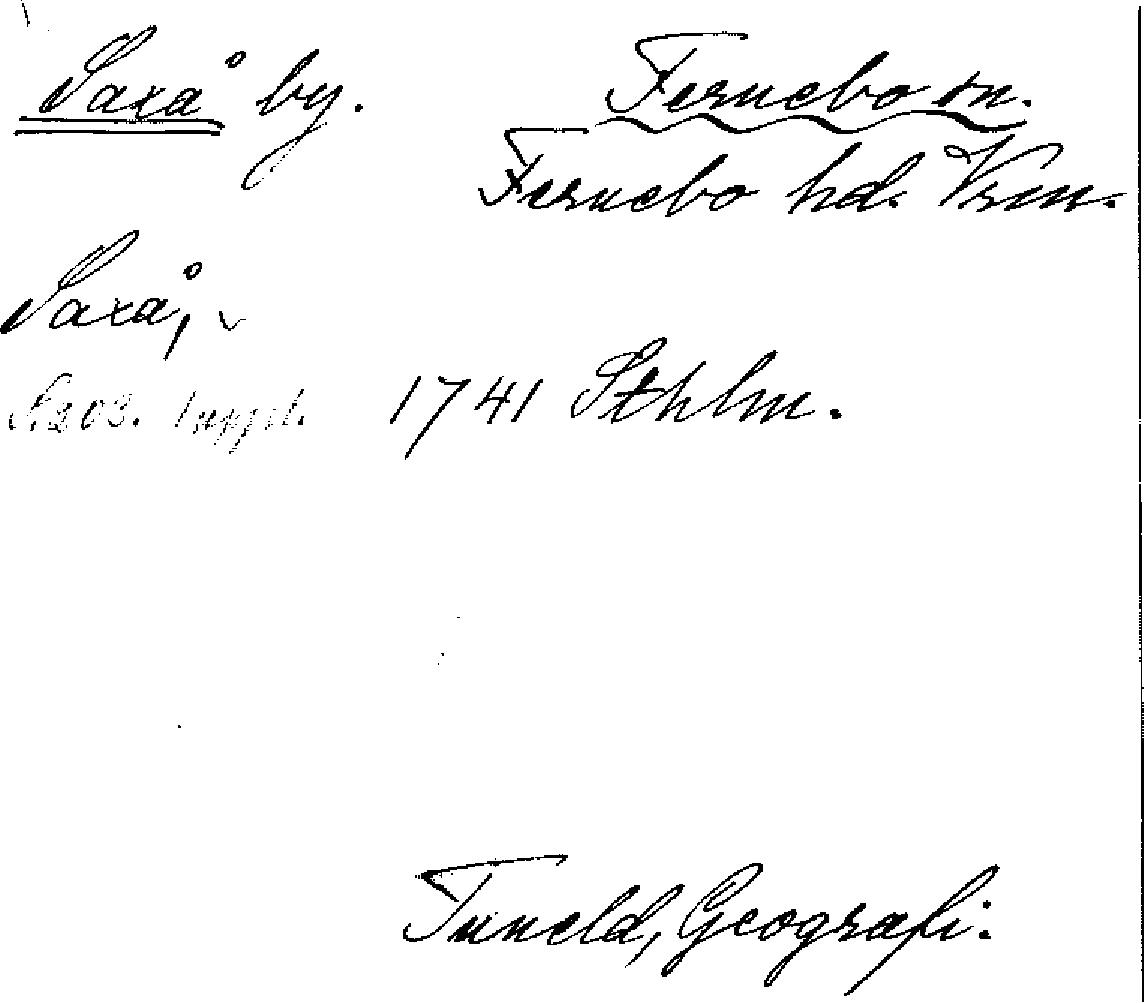 Saxå by.
Fernebo sn.
Fernebo hd. Vrm.
Saxå,
S. 203. Suppl. 1741 Sthlm.
Tuneld, Geografi.